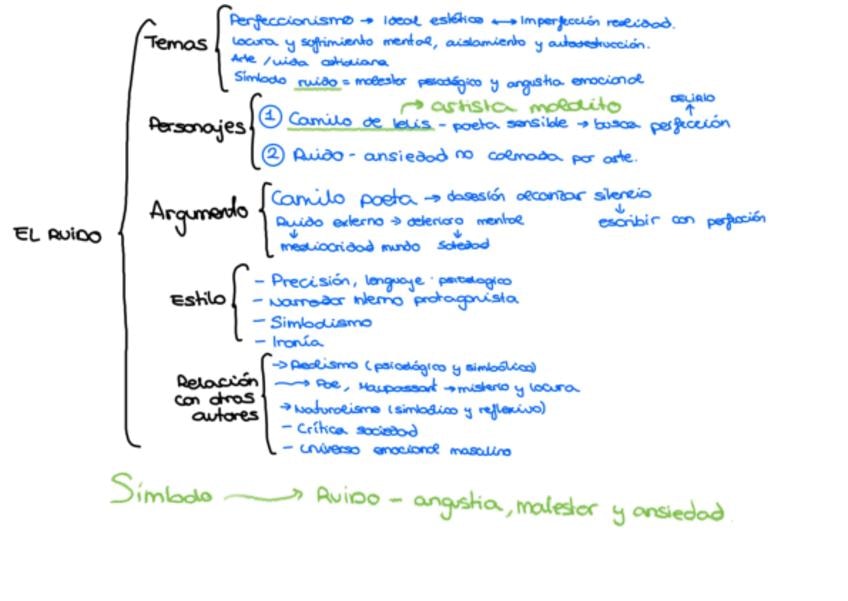 EL RUIDO
Temas
Perfeccionismo → Ideal estético ↔ Imperfección realidad.
locura y sufrimiento mental, aislamiento y autodestrucción.
Arte / vida cotidiana
Símbolo ruido = malestar psicológico y angustia emocional
Personajes
→ artista maldito
DELIRIO
① Camilo de lelis - poeta sensible → busca perfección
② Ruido - ansiedad no colmada por arte.
Argumento
Camilo poeta → obsesión alcanzar silencio
Ruido externo → deterioro mental
escribir con perfección
mediocridad mundo soledad
Estilo
- Precisión, lenguaje psicológico
- Narrador interno protagonista
- Simbolismo
- Ironía
Relación con otros autores
→ Realismo (psicológico y simbólico)
→ Poe, Maupassant → misterio y locura
→ Naturalismo (simbólico y reflexivo)
- Crítica sociedad
- Universo emocional masculino
Símbolo → Ruido - angustia, malestar y ansiedad